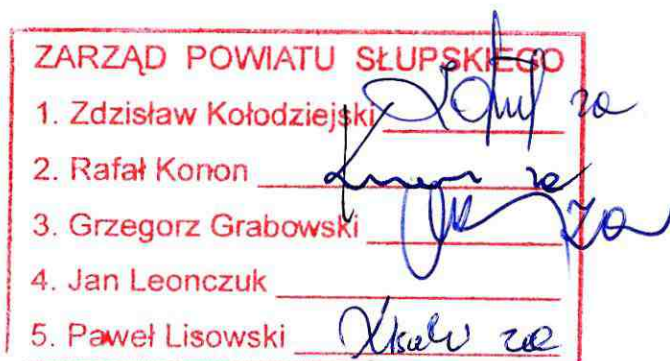 ZARZĄD POWIATU SŁUPSKIEGO
1. Zdzisław Kołodziejski za
2. Rafał Konon za
3. Grzegorz Grabowski za
4. Jan Leonczuk
5. Paweł Lisowski za